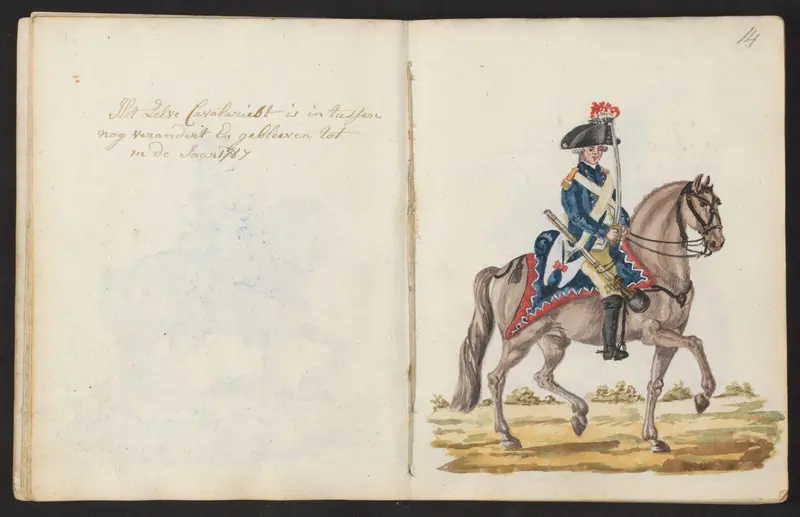 Het Zelve Cavalariest is in tussen
nog verandert En gebleeven tot
in de Jaar 1787
14